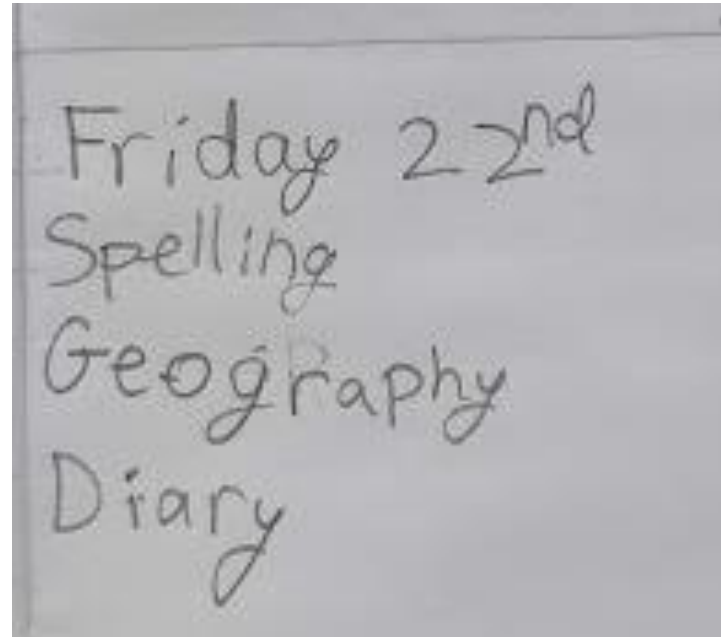 Friday 22nd
Spelling
Geography
Diary